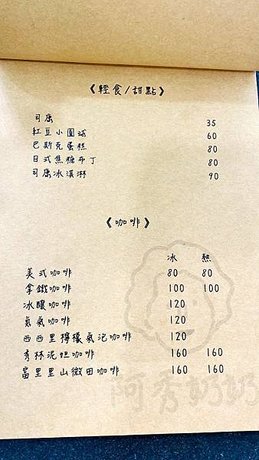 《輕食/甜點》
司康 35
紅豆小圓球 60
巴斯克蛋糕 80
日式焦糖布丁 80
司康冰淇淋 90
《咖啡》
冰 熱
美式咖啡 80 80
拿鐵咖啡 100 100
冰釀咖啡 120
氮氣咖啡 120
西西里檸檬氣泡咖啡 120
秀林泥坦咖啡 160 160
富里里山微田咖啡 160 160
阿秀奶奶